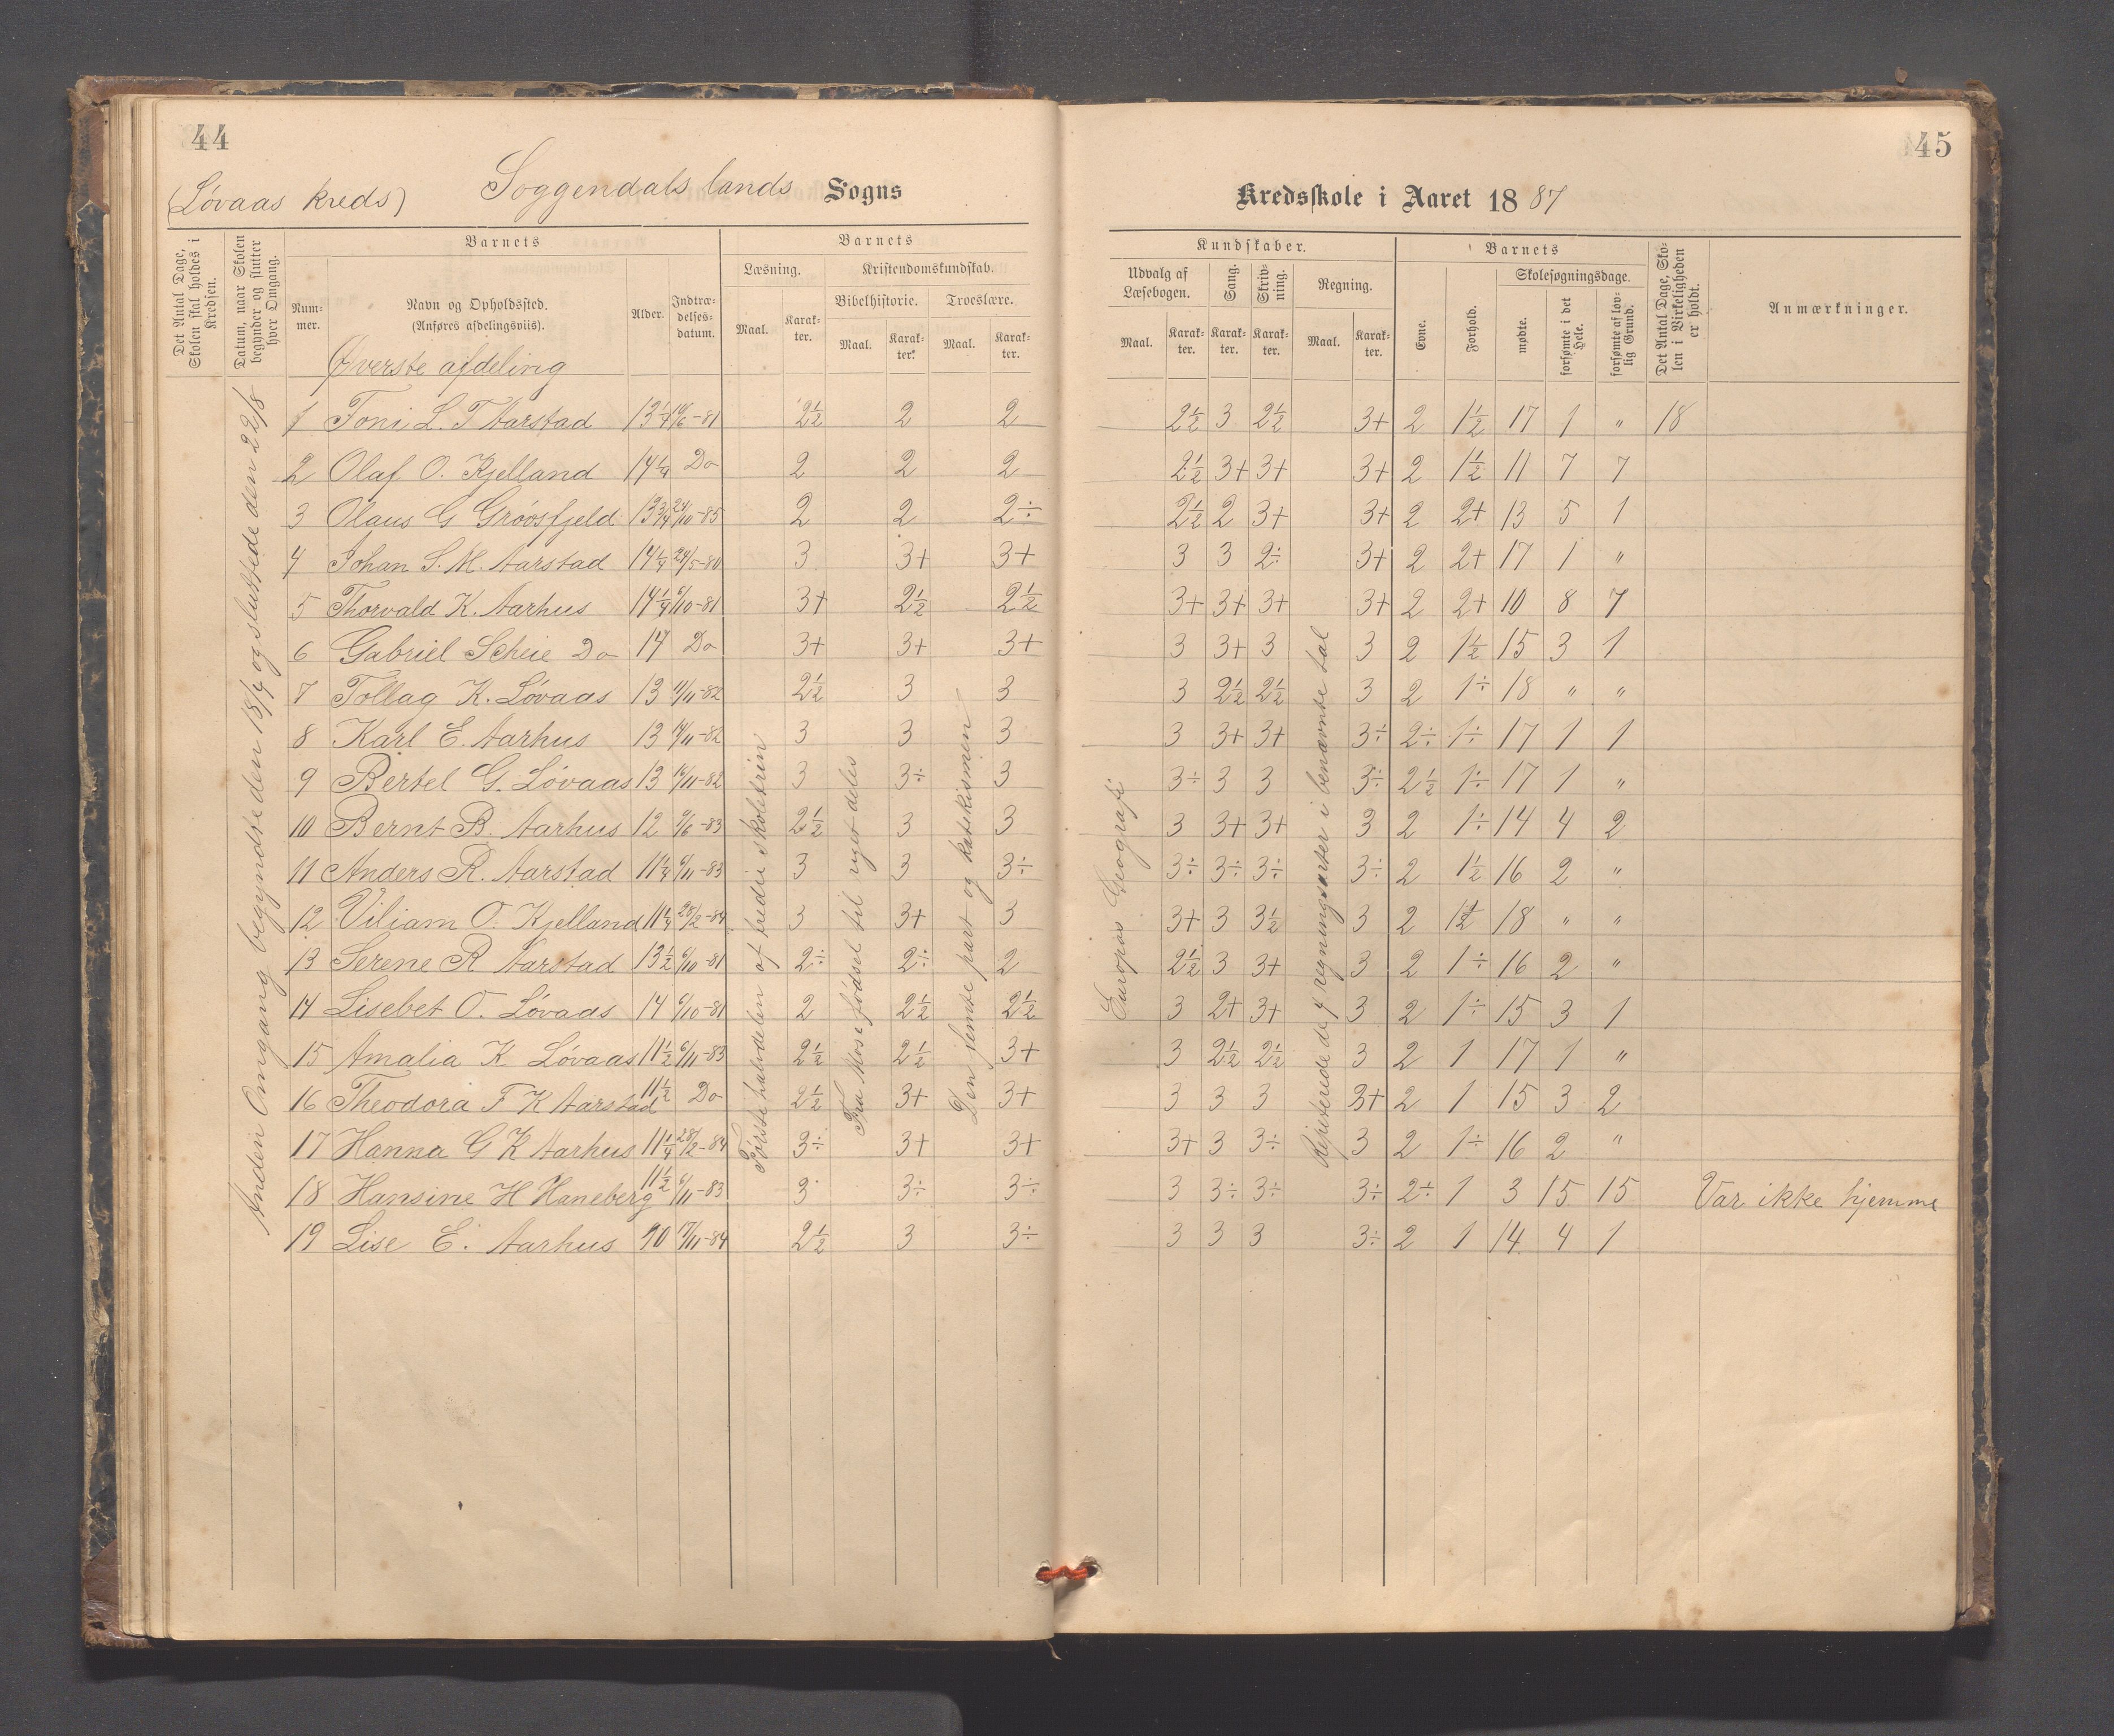 44
45
(Løvaas kreds) Soggendals lands Sogns
Kredsskole i Aaret 1887
Det Antal Dage, Skolen skal holdes i Kredsen.
Datum, naar Skolen begynder og slutter hver Omgang.
Barnets
Num-mer.
Navn og Opholdssted.
(Anføres afdelingsviis).
Alder.
Indtræ-delses-datum.
Barnets
Læsning.
Kristendomskundskab.
Bibelhistorie.
Troeslære.
Maal. Karak-ter. Maal. Karak-ter. Maal. Karak-ter.
Kundskaber.
Udvalg af Læsebogen.
Sang.
Skriv-ning.
Regning.
Maal. Karak-ter. Karak-ter. Karak-ter. Maal. Karak-ter.
Barnets
Evne.
Forhold.
Skolesøgningsdage.
mødte.
forsømte i det Hele.
forsømte af lov-lig Grund.
Det Antal Dage, Sko-len i Virkeligheden er holdt.
Anmærkninger.
Øverste afdeling
Anden Omgang begyndte den 18/7 og sluttede den 22/8
Første halvdelen af tredie skoletrin
Fra Mose fødsel til riget deles
Den femte part og katekismen
Europas Geografi
Repeterede de 4 regningsarter i benævnte tal
1 Toni L. T Aarstad 13 1/4 16/6-81 2½ 2 2 2½ 3 2½ 3+ 2 1½ 17 1 " 18
2 Olaf O. Kjelland 14 1/4 Do 2 2 2 2½ 3+ 3+ 3+ 2 1½ 11 7 7
3 Olaus G Grøosfjeld 13 3/4 24/10-85 2 2 2÷ 2½ 2 3+ 3+ 2 2+ 13 5 1
4 Johan S. M. Aarstad 14 1/4 24/5-80 3 3+ 3+ 3 3 2÷ 3+ 2 2+ 17 1 "
5 Thorvald K. Aarhus 14 1/4 6/10-81 3+ 2½ 2½ 3+ 3+ 3+ 3+ 2 2+ 10 8 7
6 Gabriel Scheie Do 14 Do 3+ 3+ 3+ 3 3+ 3 3 2 1½ 15 3 1
7 Tollag K. Løvaas 13 11/11-82 2½ 3 3 3 2½ 2½ 3 2 1÷ 18 " "
8 Karl E. Aarhus 13 14/11-82 3 3 3 3 3+ 3+ 3÷ 2÷ 1÷ 17 1 1
9 Bertel G. Løvaas 13 14/11-82 3 3÷ 3 3÷ 3 3 3÷ 2½ 1÷ 17 1 "
10 Bernt B. Aarhus 12 9/6-83 2½ 3 3 3 3+ 3+ 3 2 1÷ 14 4 2
11 Anders R. Aarstad 11 1/4 6/11-83 3 3 3÷ 3÷ 3÷ 3÷ 3÷ 2 1½ 16 2 "
12 Viliam O. Kjelland 11 1/4 28/2-84 3 3+ 3 3+ 3 3½ 3 2 1½ 18 " "
13 Serene R Aarstad 13½ 6/10-81 2÷ 2÷ 2 2½ 3 3+ 3 2 1÷ 16 2 "
14 Lisebet O. Løvaas 14 6/10-81 2 2½ 2½ 3 2+ 3+ 3 2 1÷ 15 3 1
15 Amalia K Løvaas 11½ 6/11-83 2½ 2½ 3+ 3 2½ 2½ 3 2 1 17 1 "
16 Theodora F K Aarstad 11½ Do 2½ 3+ 3+ 3 3 3 3+ 2 1 15 3 2
17 Hanna G K Aarhus 11 1/4 28/2-84 3÷ 3+ 3+ 3+ 3 3÷ 3 2 1÷ 16 2 "
18 Hansine H Haneberg 11½ 6/11-83 3 3÷ 3÷ 3 3÷ 3÷ 3÷ 2÷ 1 3 15 15 Var ikke hjemme
19 Lise E. Aarhus 10 17/11-84 2½ 3 3÷ 3 3 3 3÷ 2 1 14 4 1